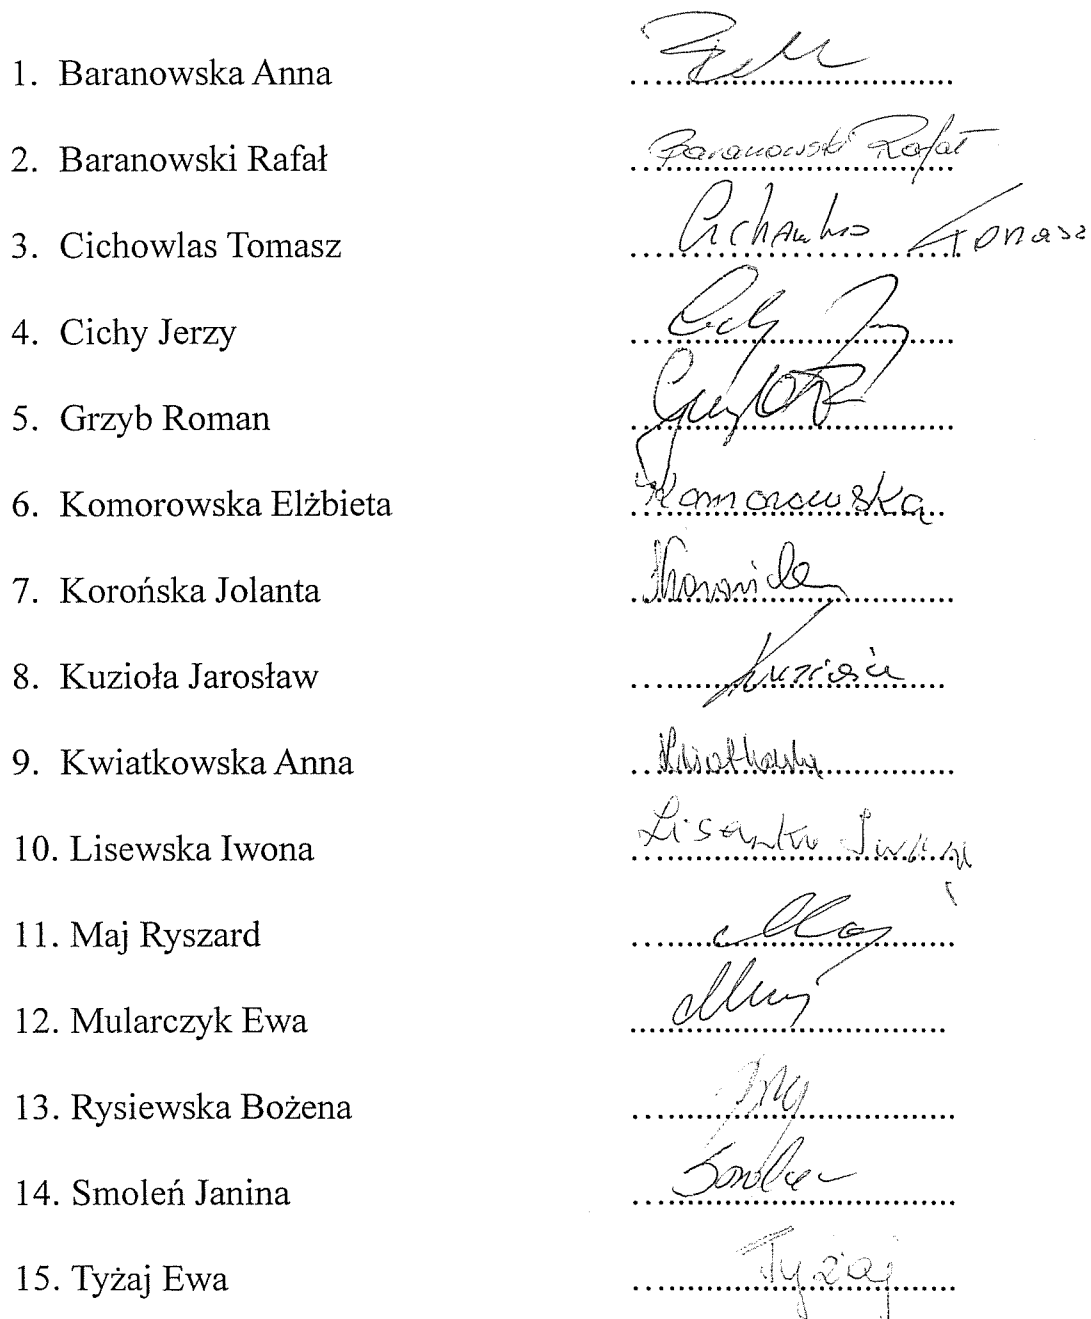 1. Baranowska Anna
2. Baranowski Rafał Baranowski Rafał
3. Cichowlas Tomasz Tomasz
4. Cichy Jerzy
5. Grzyb Roman
6. Komorowska Elżbieta Komorowska
7. Korońska Jolanta
8. Kuzioła Jarosław
9. Kwiatkowska Anna Kwiatkowska
10. Lisewska Iwona
11. Maj Ryszard Maj
12. Mularczyk Ewa
13. Rysiewska Bożena
14. Smoleń Janina
15. Tyżaj Ewa Tyżaj